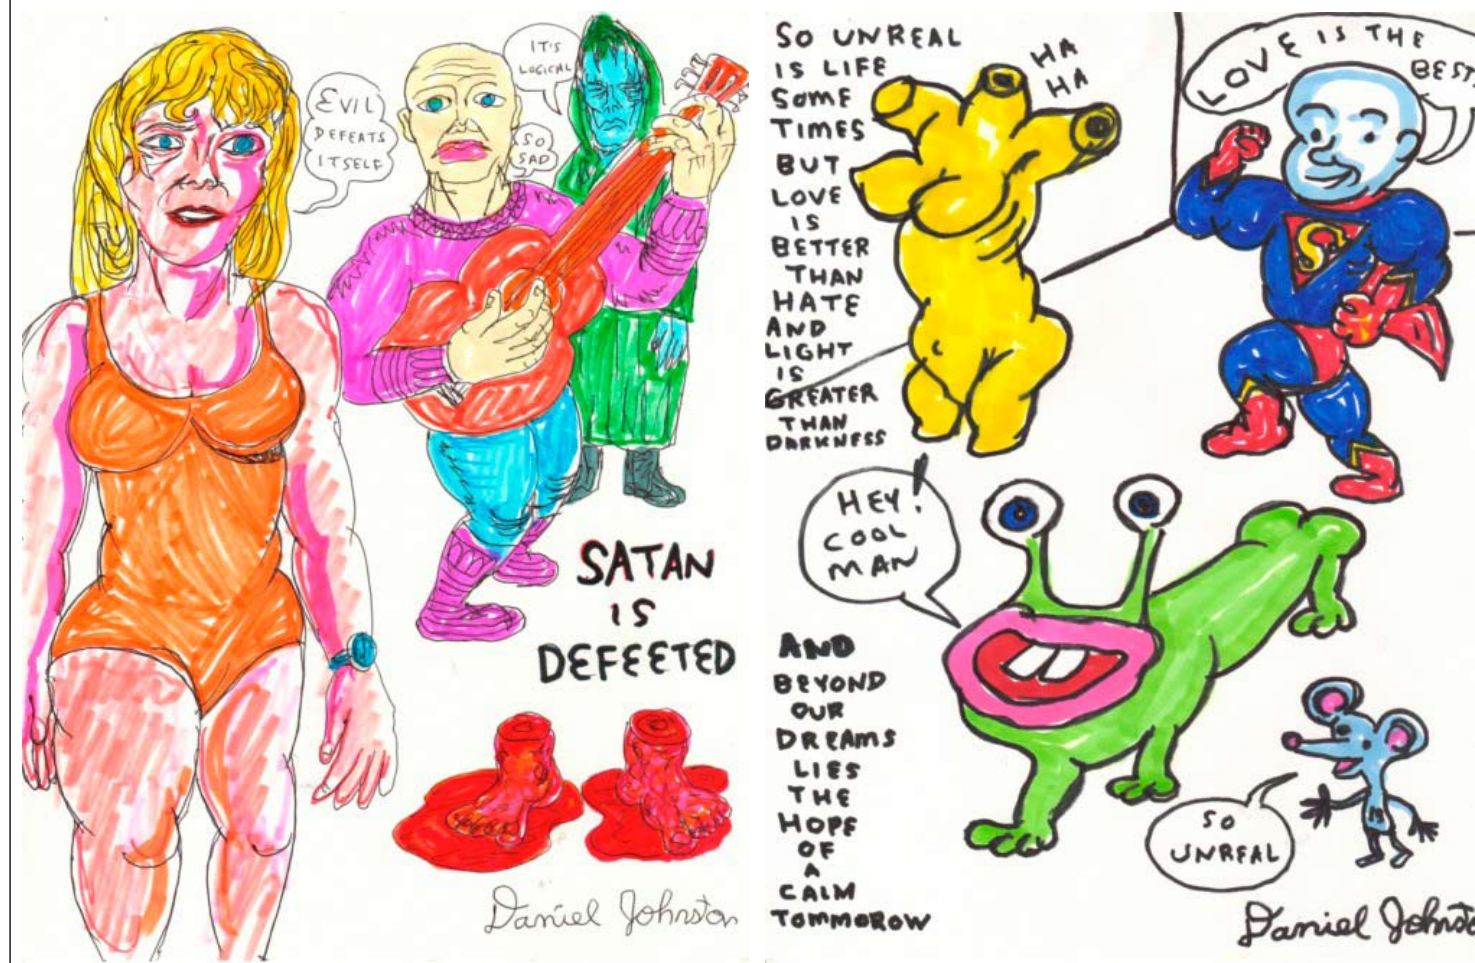 EVIL
DEFEATS
ITSELF
IT'S
LOGICAL
SO
SAD
SATAN
IS
DEFEETED
Daniel Johnston
SO UNREAL
IS LIFE
SOME
TIMES
BUT
LOVE
IS
BETTER
THAN
HATE
AND
LIGHT
IS
GREATER
THAN
DARKNESS
HA
HA
LOVE IS THE
BEST
S
HEY!
COOL
MAN
AND
BEYOND
OUR
DREAMS
LIES
THE
HOPE
OF
A
CALM
TOMMOROW
SO
UNREAL
Daniel Johnsto